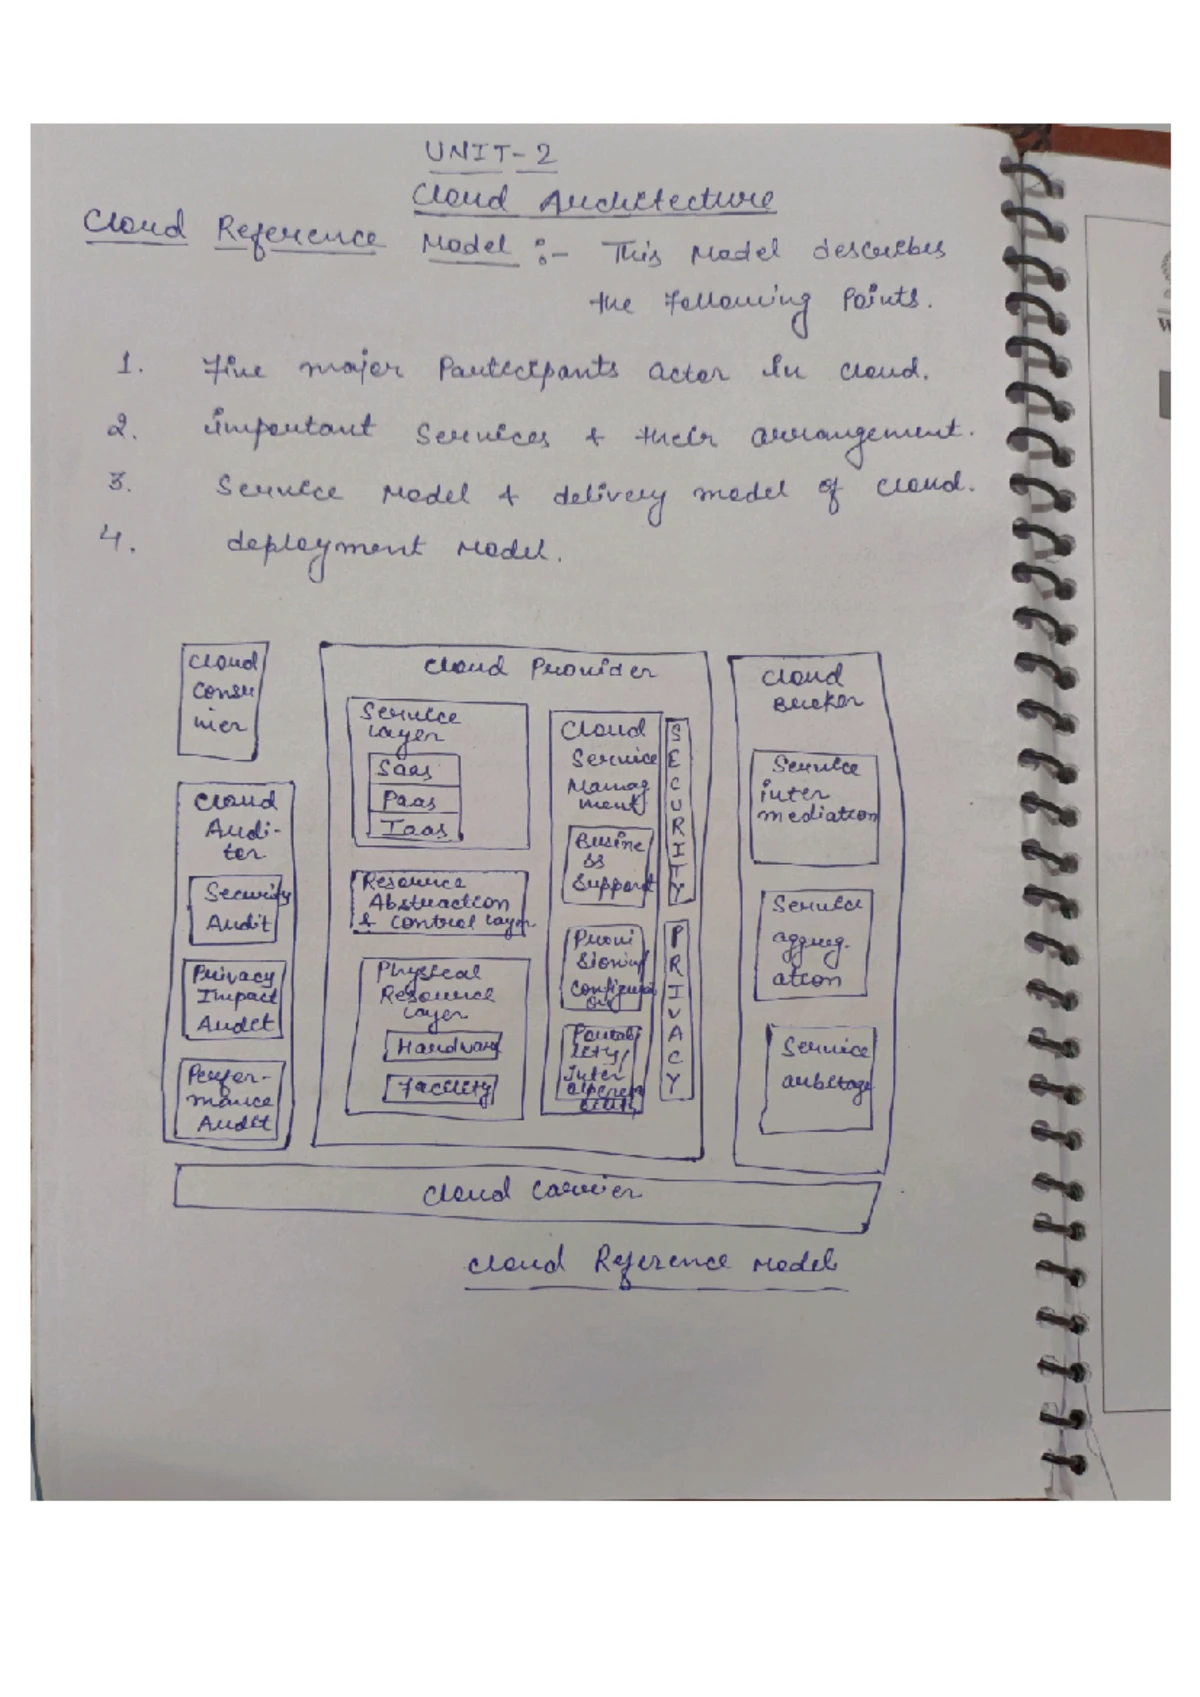 UNIT-2
Cloud Architecture
Cloud Reference Model :- This Model describes
the Following Points.
1. Five major Participants actor in cloud.
2. important Services & their arrangement.
3. Service Model & delivery model of cloud.
4. deployment Model.
Cloud
Consu
mer
Cloud
Audi-
tor
Security
Audit
Privacy
Impact
Audit
Perfor-
mance
Audit
Cloud Provider
Service
layer
Saas
Paas
Iaas
Resource
Abstraction
& control layer
Physical
Resource
layer
Hardware
Facility
Cloud
Service
Manag
ment
Busine
ss
Support
Provi
sioning
Configurati
on
Portabi
lity/
Inter
operab
ility
SECURITY
PRIVACY
Cloud
Broker
Service
inter
mediation
Service
aggreg.
ation
Service
arbitage
Cloud Carrier
Cloud Reference Model
W